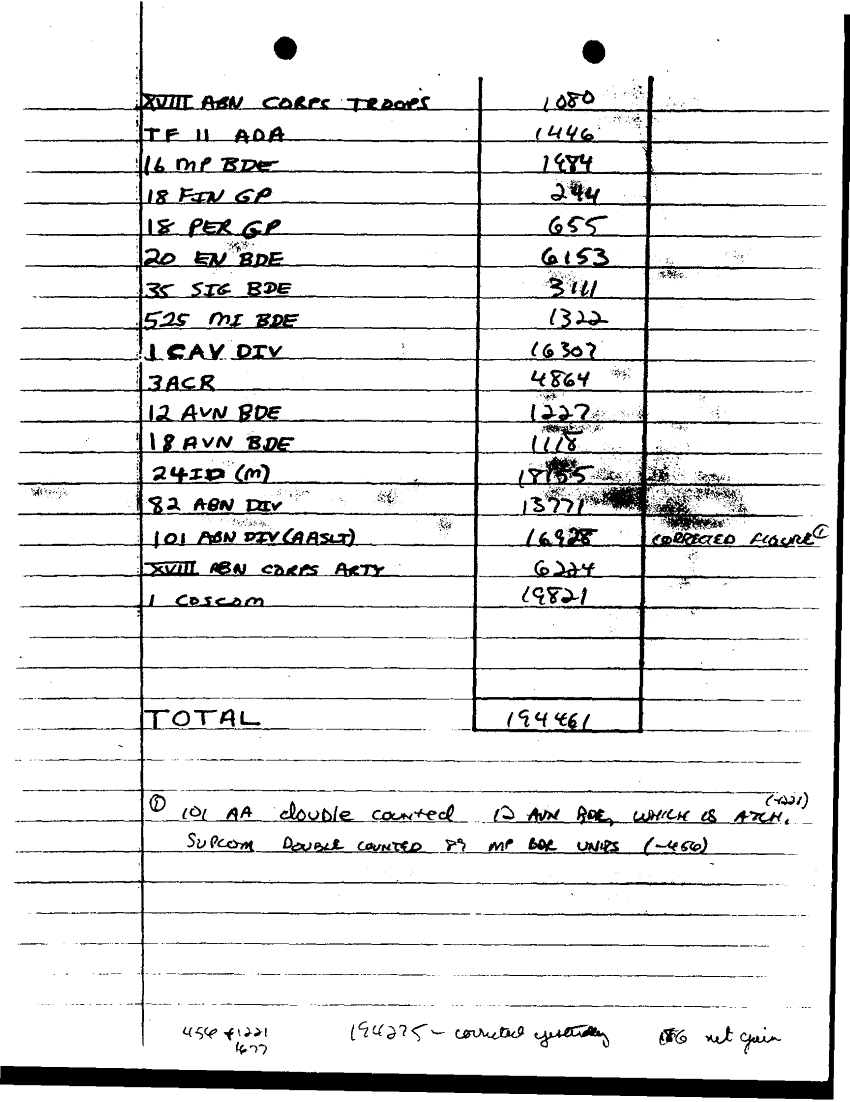 XVIII ABN CORPS TROOPS 1080
TF 11 ADA 1446
16 MP BDE 1984
18 FIN GP 244
18 PER GP 655
20 EN BDE 6153
35 SIG BDE 3111
525 MI BDE 1322
1 CAV DIV 16307
3ACR 4864
12 AVN BDE 1227
18 AVN BDE 1118
24 ID (M)
82 ABN DIV 13771
101 ABN DIV (AASLT) 16928 CORRECTED FIGURE ①
XVIII ABN CORPS ARTY 6224
1 COSCOM 19821
TOTAL 194461
(-1221)
① 101 AA double counted 12 AVN BDE, WHICH IS ATCH.
SUPCOM DOUBLE COUNTED 89 MP BDE UNITS (-456)
456 + 1221 194275 - corrected yesterday 186 net gain
1677